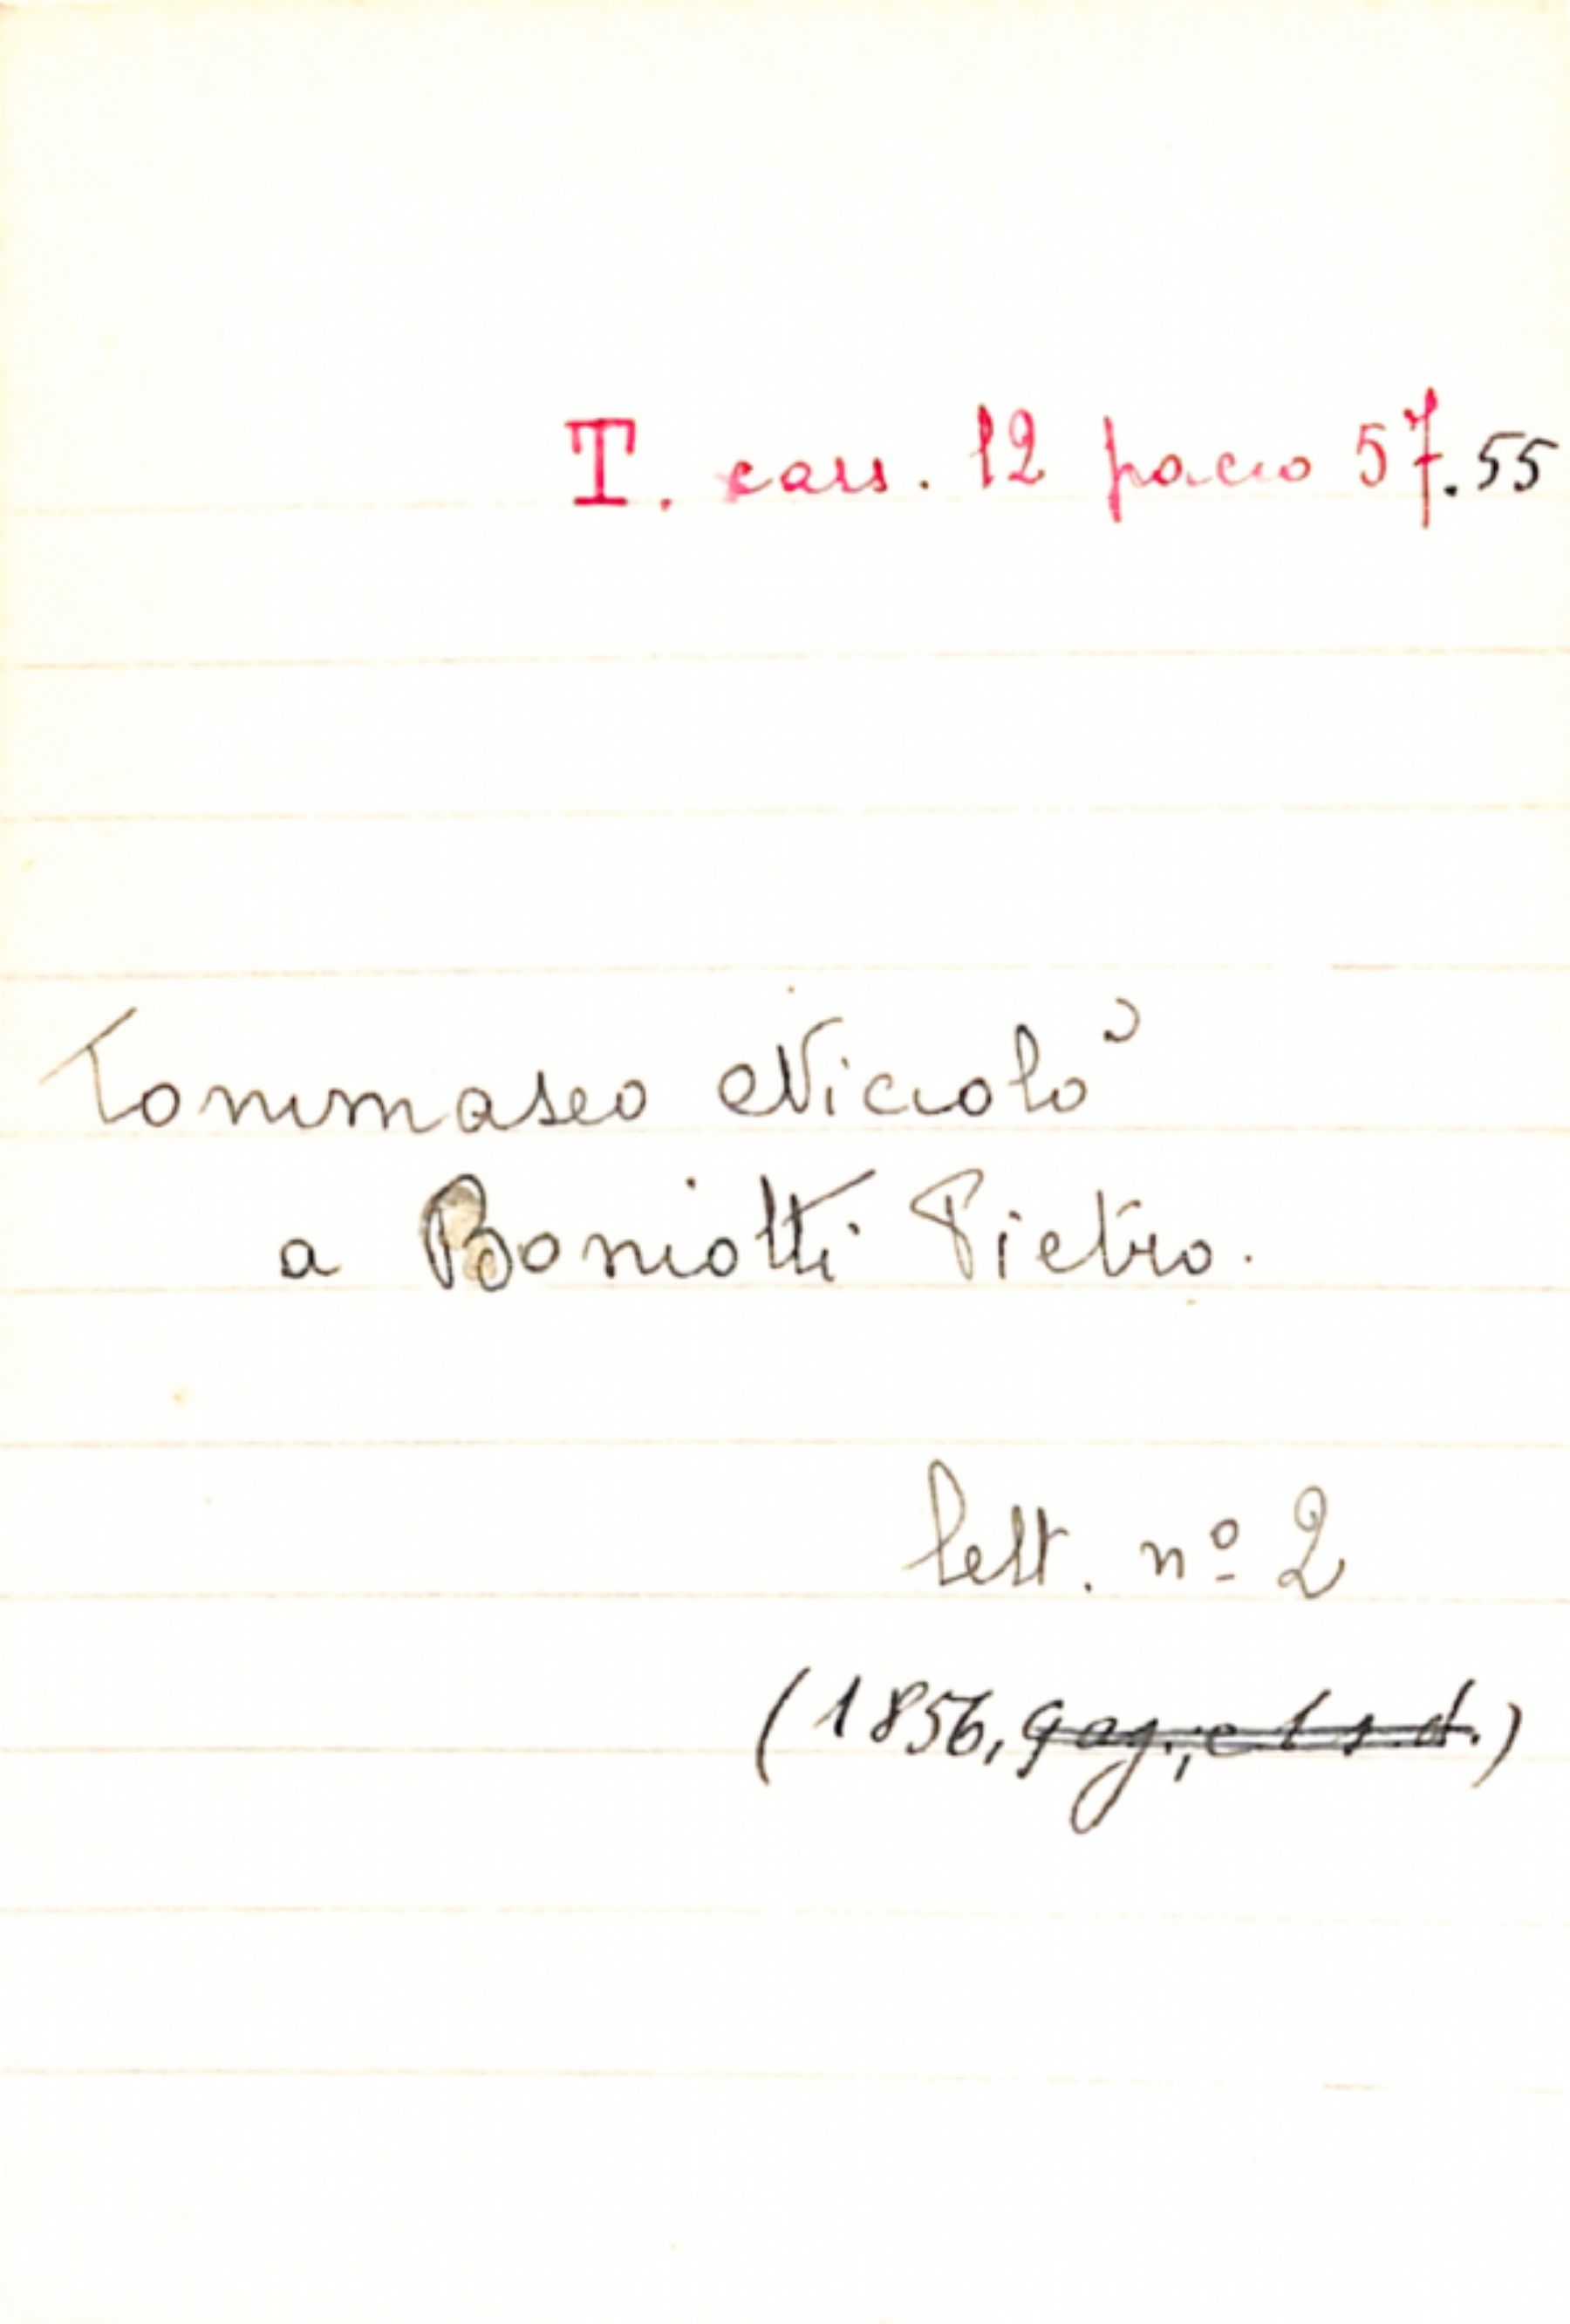 T. cass. 12 pacco 57.55
Tommaseo Niccolò
a Boniotti Pietro.
lett. nº 2
(1856, 9 ag., e 1 s.d.)